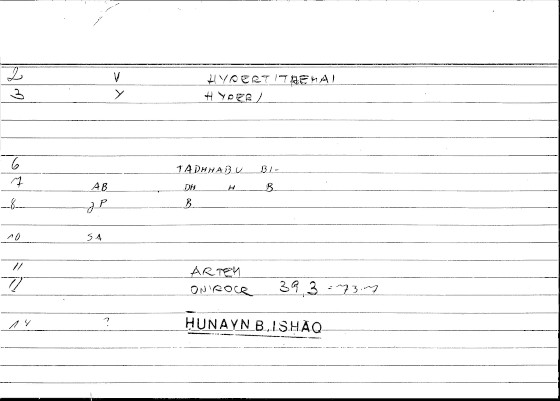 2 V HYPERTITHEMAI
3 Y HYPER/
6 TADHHABU BI-
7 AB DH H B
8 JP B
10 SA
11 ARTEM
12 ONIROCR 39,3 = 73.7
14 ? HUNAYN B. ISHAQ